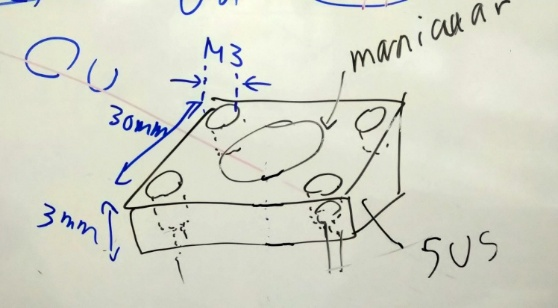 M3
maniaaar
30mm
3mm
SUS